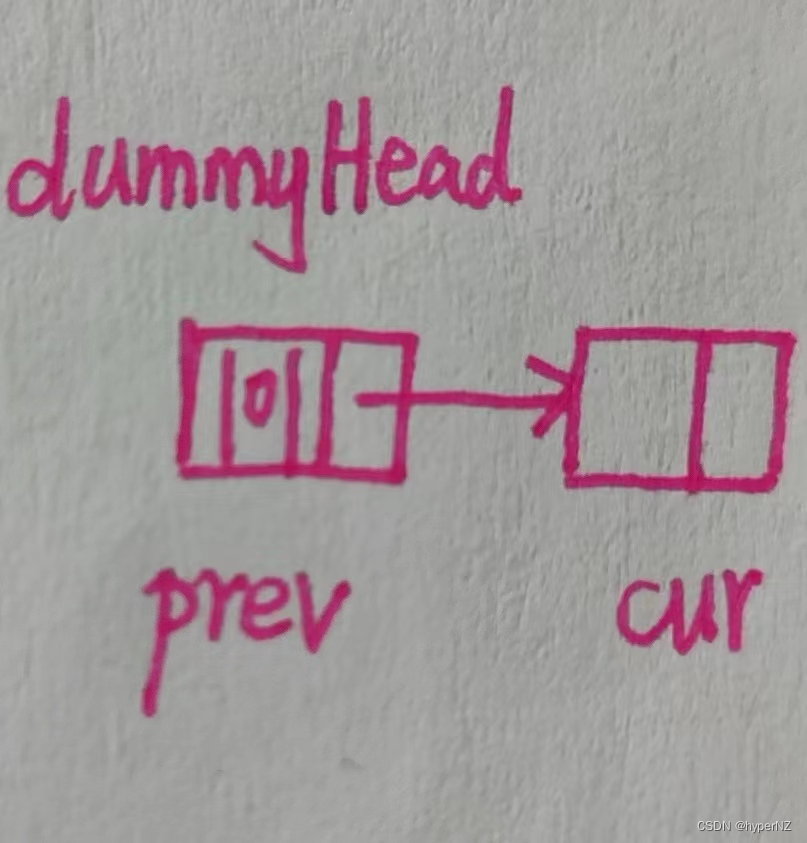 dummyHead
|0|
prev
cur
CSDN @hyperNZ